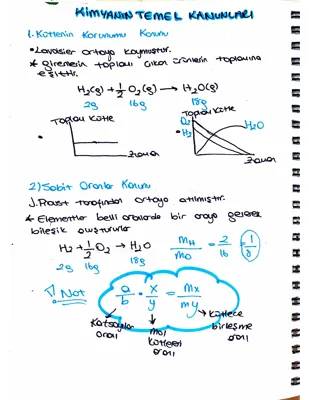 KİMYANIN TEMEL KANUNLARI
1. Kütlenin Korunumu Kanunu
• Lavoisier ortaya koymuştur.
* Girenlerin toplamı çıkan ürünlerin toplamına eşittir.
H₂(g) + 1/2 O₂(g) → H₂O(g)
2g 16g 18g
Toplam kütle
Zaman
Toplam kütle
O₂
H₂
H₂O
Zaman
2) Sabit Oranlar Kanunu
J. Proust tarafından ortaya atılmıştır.
* Elementler belli oranlarda bir araya gelerek
bileşik oluştururlar
H₂ + 1/2 O₂ → H₂O
2g 16g 18g
mH/mO = 2/16 = 1/8
! Not
a/b · x/y = mx/my
Katsayılar oranı
mol kütleleri oranı
kütlece birleşme oranı